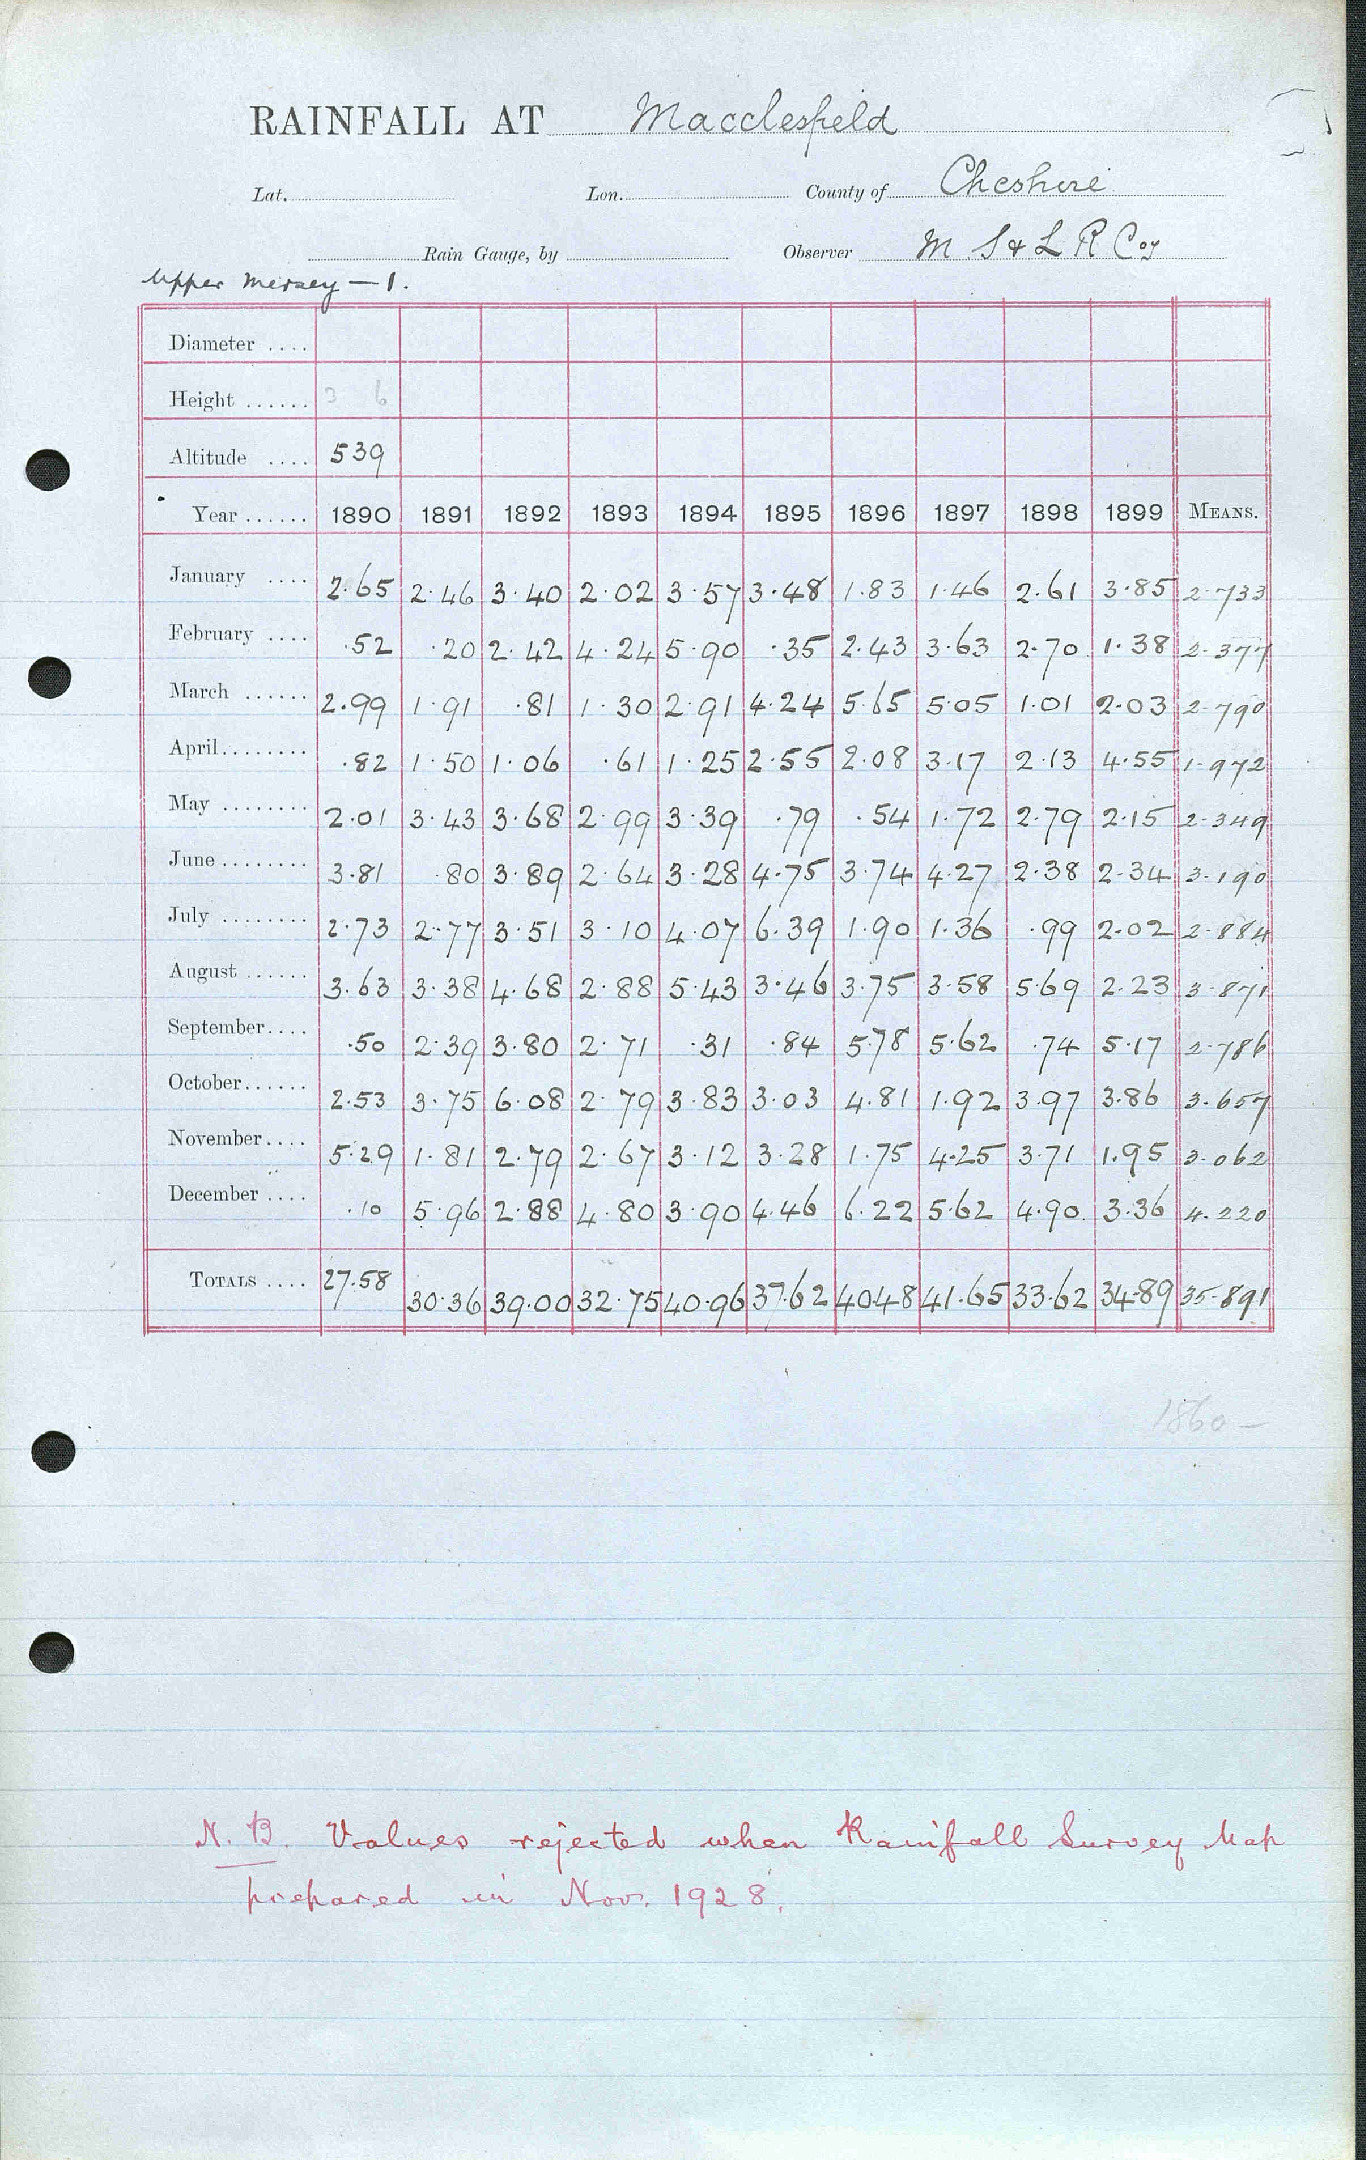 RAINFALL AT Macclesfield
Lat. Lon. County of Cheshire
Rain Gauge, by Observer M S & L R Coy
Upper Mersey — 1.
Diameter ....
Height ...... 3 6
Altitude .... 539
Year ...... 1890 1891 1892 1893 1894 1895 1896 1897 1898 1899 MEANS.
January .... 2.65 2.46 3.40 2.02 3.57 3.48 1.83 1.46 2.61 3.85 2.733
February .... .52 .20 2.42 4.24 5.90 .35 2.43 3.63 2.70 1.38 2.377
March ...... 2.99 1.91 .81 1.30 2.91 4.24 5.65 5.05 1.01 2.03 2.790
April ........ .82 1.50 1.06 .61 1.25 2.55 2.08 3.17 2.13 4.55 1.972
May ........ 2.01 3.43 3.68 2.99 3.39 .79 .54 1.72 2.79 2.15 2.349
June ........ 3.81 .80 3.89 2.64 3.28 4.75 3.74 4.27 2.38 2.34 3.190
July ........ 2.73 2.77 3.51 3.10 4.07 6.39 1.90 1.36 .99 2.02 2.884
August ...... 3.63 3.38 4.68 2.88 5.43 3.46 3.75 3.58 5.69 2.23 3.871
September.... .50 2.39 3.80 2.71 .31 .84 5.78 5.62 .74 5.17 2.786
October...... 2.53 3.75 6.08 2.79 3.83 3.03 4.81 1.92 3.97 3.86 3.657
November.... 5.29 1.81 2.79 2.67 3.12 3.28 1.75 4.25 3.71 1.95 3.062
December .... .10 5.96 2.88 4.80 3.90 4.46 6.22 5.62 4.90 3.36 4.220
TOTALS .... 27.58 30.36 39.00 32.75 40.96 37.62 40.48 41.65 33.62 34.89 35.891
1860 —
N. B. Values rejected when Rainfall Survey Map
prepared in Nov. 1928.